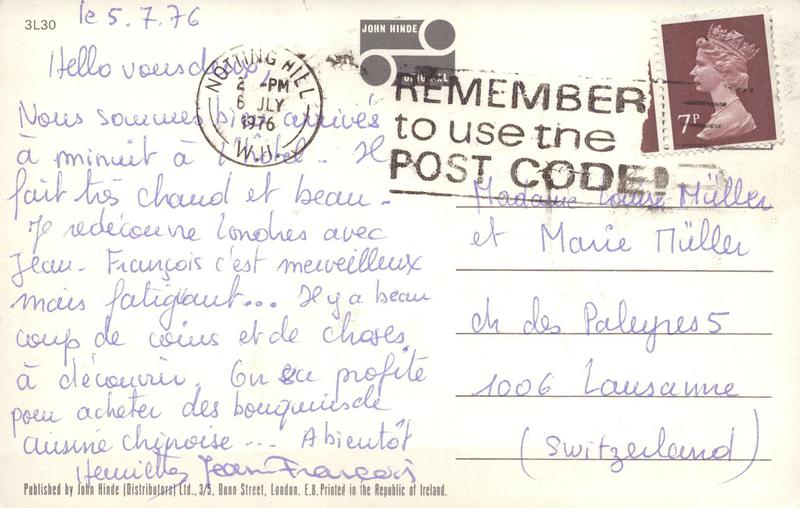 3L30
le 5.7.76
JOHN HINDE
ORIGINAL
Hello vous deux!
NOTTING HILL
2 - PM
6 JLY
1976
W.11
REMEMBER
to use the
POST CODE!
7P
Nous sommes bien arrivés
à minuit à l'hôtel. Il
fait très chaud et beau.
Je redécouvre Londres avec
Jean-François c'est merveilleux
mais fatiguant... Il y a beau
coup de coins et de choses
à découvrir. On en profite
pour acheter des bouquins de
cuisine chinoise... A bientôt
Henriette Jean François
Madame Louise Müller
et Marie Müller
ch des Paleyres 5
1006 Lausanne
(Switzerland)
Published by John Hinde (Distributors) Ltd., 3/5, Dunn Street, London. E.8. Printed in the Republic of Ireland.